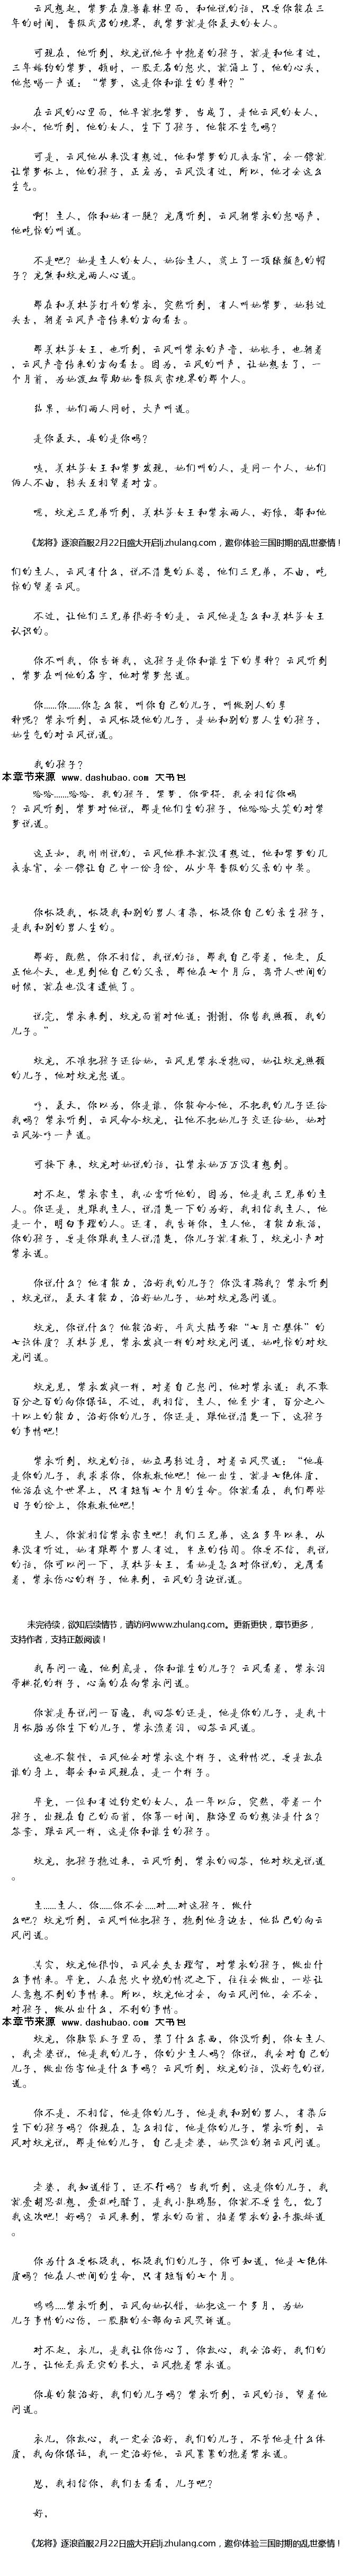 云风想起，紫梦在魔兽森林里面，和他说的话，只要你能在三
年的时间，晋级武君的境界，我紫梦就是你聂天的女人。
可现在，他听到，蛟龙说他手中抱着的孩子，就是和他有过，
三年婚约的紫梦，顿时，一股无名的怒火，就涌上了，他的心头，
他怒喝一声道：“紫梦，这是你和谁生的孽种？”
在云风的心里面，他早就把紫梦，当成了，是他云风的女人，
如今，他听到，他的女人，生下了孩子，他能不生气吗？
可是，云风他从来没有想过，他和紫梦的几夜春宵，会一镖就
让紫梦怀上，他的孩子，正应为，云风没有过，所以，他才会这么
生气。
啊！主人，你和她有一腿？龙鹰听到，云风朝紫衣的怒喝声，
他吃惊的叫道。
不是吧？她是主人的女人，她给主人，戴上了一顶绿颜色的帽
子？龙熊和蛟龙两人心道。
那在和美杜莎打斗的紫衣，突然听到，有人叫她紫梦，她转过
头去，朝着云风声音传来的方向看去。
那美杜莎女王，也听到，云风叫紫衣的声音，她收手，也朝着
，云风声音传来的方向看去。因为，云风的叫声，让她想去了，一
个月前，为她滴血帮助她晋级武宗境界的那个人。
结果，她们两人同时，大声叫道。
是你聂天，真的是你吗？
咦，美杜莎女王和紫梦发现，她们叫的人，是同一个人，她们
俩人不由，转头互相望着对方。
嗯，蛟龙三兄弟听到，美杜莎女王和紫衣两人，好像，都和他
《龙将》逐浪首服2月22日盛大开启lj.zhulang.com，邀你体验三国时期的乱世豪情！
们的主人，云风有什么，说不清楚的瓜葛，他们三兄弟，不由，吃
惊的望着云风。
不过，让他们三兄弟很好奇的是，云风他是怎么和美杜莎女王
认识的。
你不叫我，你告诉我，这孩子是你和谁生下的孽种？云风听到
，紫梦在叫他的名字，他对紫梦怒道。
你……你……你怎么能，叫你自己的儿子，叫做别人的孽
种呢？紫衣听到，云风怀疑他的儿子，是她和别的男人生的孩子，
她生气的对云风说道。
我的孩子？
本章节来源 www.dashubao.com 大书包
哈哈……哈哈，我的孩子，紫梦，你觉得，我会相信你吗
？云风听到，紫梦对他说，那是他们生的孩子，他哈哈大笑的对紫
梦说道。
这正如，我刚刚说的，云风他根本就没有想过，他和紫梦的几
夜春宵，会一镖让自己中一份身份，从少年晋级的父亲的中奖。
你怀疑我，怀疑我和别的男人有染，怀疑你自己的亲生孩子，
是我和别的男人生的。
那好，既然，你不相信，我说的话，那我自己带着，他走，反
正他今天，也见到他自己的父亲，那他在七个月后，离开人世间的
时候，就在也没有遗憾了。
说完，紫衣来到，蛟龙面前对他道：谢谢，你替我照顾，我的
儿子。”
蛟龙，不准把孩子还给她，云风见紫衣要抱回，她让蛟龙照顾
的儿子，他对蛟龙怒道。
哼，聂天，你以为，你是谁，你能命令他，不把我的儿子还给
我吗？紫衣听到，云风命令蛟龙，让他不把她儿子交还给她，她对
云风冷哼一声道。
可接下来，蛟龙对她说的话，让紫衣她万万没有想到。
对不起，紫衣宗主，我必需听他的，因为，他是我三兄弟的主
人。你还是，先跟我主人，说清楚一下的为好，我相信我主人，他
是一个，明白事理的人。还有，我告诉你，主人他，有能力救活，
你的孩子，要是你跟我主人说清楚，你儿子就有救了，蛟龙小声对
紫衣道。
你说什么？他有能力，治好我的儿子？你没有骗我？紫衣听到
，蛟龙说，聂天有能力，治好她儿子，她对蛟龙急问道。
蛟龙，你说什么？他能治好，斗武大陆号称“七月亡婴体”的
七绝体质？美杜莎见，紫衣发疯一样的对蛟龙问道，她吃惊的对蛟
龙问道。
蛟龙见，紫衣发疯一样，对着自己怒问，他对紫衣道：我不敢
百分之百的向你保证，不过，我相信，主人，他至少有，百分之八
十以上的能力，治好你的儿子，你还是，跟他说清楚一下，这孩子
的事情吧！
紫衣听到，蛟龙的话，她立马转过身，对着云风哭道：“他真
是你的儿子，我求求你，你救救他吧！他一出生，就是七绝体质，
他活在这个世界上，只有短暂七个月的生命。你就看在，我们那些
日子的份上，你救救他吧！
主人，你就相信紫衣宗主吧！我们三兄弟，这么多年以来，从
来没有听过，她有跟那个男人有过，半点的传闻。你要不信，我说
的话，你可以问一下，美杜莎女王，看她是怎么对你说的，龙鹰看
着，紫衣伤心的样子，他来到，云风的身边说道。
未完待续，欲知后续情节，请访问www.zhulang.com。更新更快，章节更多，
支持作者，支持正版阅读！
我再问一遍，他到底是，你和谁生的儿子？云风看着，紫衣泪
带桃花的样子，心痛的在向紫衣问道。
你就是再说问一百遍，我回答的还是，他是你的儿子，是我十
月怀胎为你生下的儿子，紫衣流着泪，回答云风道。
这也不能怪，云风他会对紫衣这个样子，这种情况，要是放在
谁的身上，都会和云风现在，是一个样子。
毕竟，一位和有过约定的女人，在一年以后，突然，带着一个
孩子，出现在自己的面前，你第一时间，脑海里面的想法是什么？
答案，跟云风一样，这是你和谁生的孩子。
蛟龙，把孩子抱过来，云风听到，紫衣的回答，他对蛟龙说道
。
主……主人，你……你不会……对……对这孩子，做什
么吧？蛟龙听到，云风叫他把孩子，抱到他身边去，他结巴的向云
风问道。
其实，蛟龙他很怕，云风会失去理智，对紫衣的孩子，做出什
么事情来。毕竟，人在怒火中烧的情况之下，往往会做出，一些让
人意想不到的事情来。所以，蛟龙他才会，向云风问他，会不会，
对孩子，做从出什么，不利的事情。
本章节来源 www.dashubao.com 大书包
蛟龙，你脑袋瓜子里面，装了什么东西，你没听到，你女主人
，我老婆说，他是我的儿子，你的少主人吗？你说，我会对自己的
儿子，做出伤害他是什么事吗？云风听到，蛟龙的话，没好气的说
道。
你不是，不相信，他是你的儿子，他是我和别的男人，有染后
生下的孩子吗？你现在，怎么相信，他是你的儿子，紫衣听到，云
风对蛟龙说，那是他的儿子，自己是老婆，她哭泣的朝云风问道。
老婆，我知道错了，还不行吗？当我听到，这是你的儿子，我
就爱胡思乱想，爱乱吃醋了，是我小肚鸡肠，你就不要生气，饶了
我这次吧！好吗？云风来到，紫衣的面前，拉着紫衣的玉手撒娇道
。
你为什么要怀疑我，怀疑我们的儿子，你可知道，他是七绝体
质吗？他在人世间的生命，只有短暂的七个月。
呜呜……紫衣听到，云风向她认错，她把这一个多月，为她
儿子事情的心伤，一股脑的全部向云风哭诉道。
对不起，衣儿，是我让你伤心了，你放心，我会治好，我们的
儿子，让他无病无灾的长大，云风抱着紫衣道。
你真的能治好，我们的儿子吗？紫衣听到，云风的话，望着他
问道。
衣儿，你放心，我一定会治好，我们的儿子，不管他是什么体
质，我向你保证，我一定治好他，云风紧紧的抱着紫衣道。
恩，我相信你，我们去看看，儿子吧？
好，
《龙将》逐浪首服2月22日盛大开启lj.zhulang.com，邀你体验三国时期的乱世豪情！